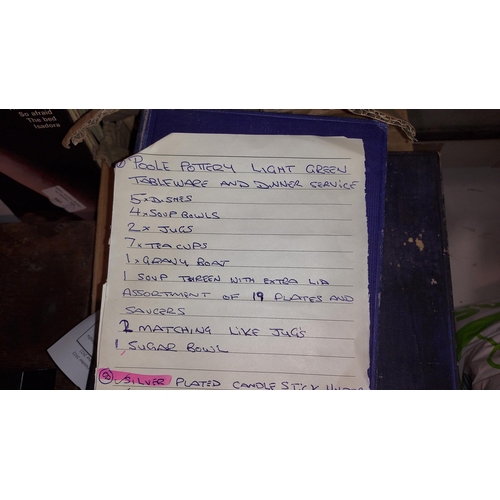 So afraid
The bed
Isadora
POOLE POTTERY LIGHT GREEN
TABLEWARE AND DINNER SERVICE
5 x DISHES
4 x SOUP BOWLS
2 x JUGS
7 x TEA CUPS
1 x GRAVY BOAT
1 SOUP TUREEN WITH EXTRA LID
ASSORTMENT OF 19 PLATES AND
SAUCERS
2 MATCHING LIKE JUGS
1 SUGAR BOWL
SILVER PLATED CANDLE STICK